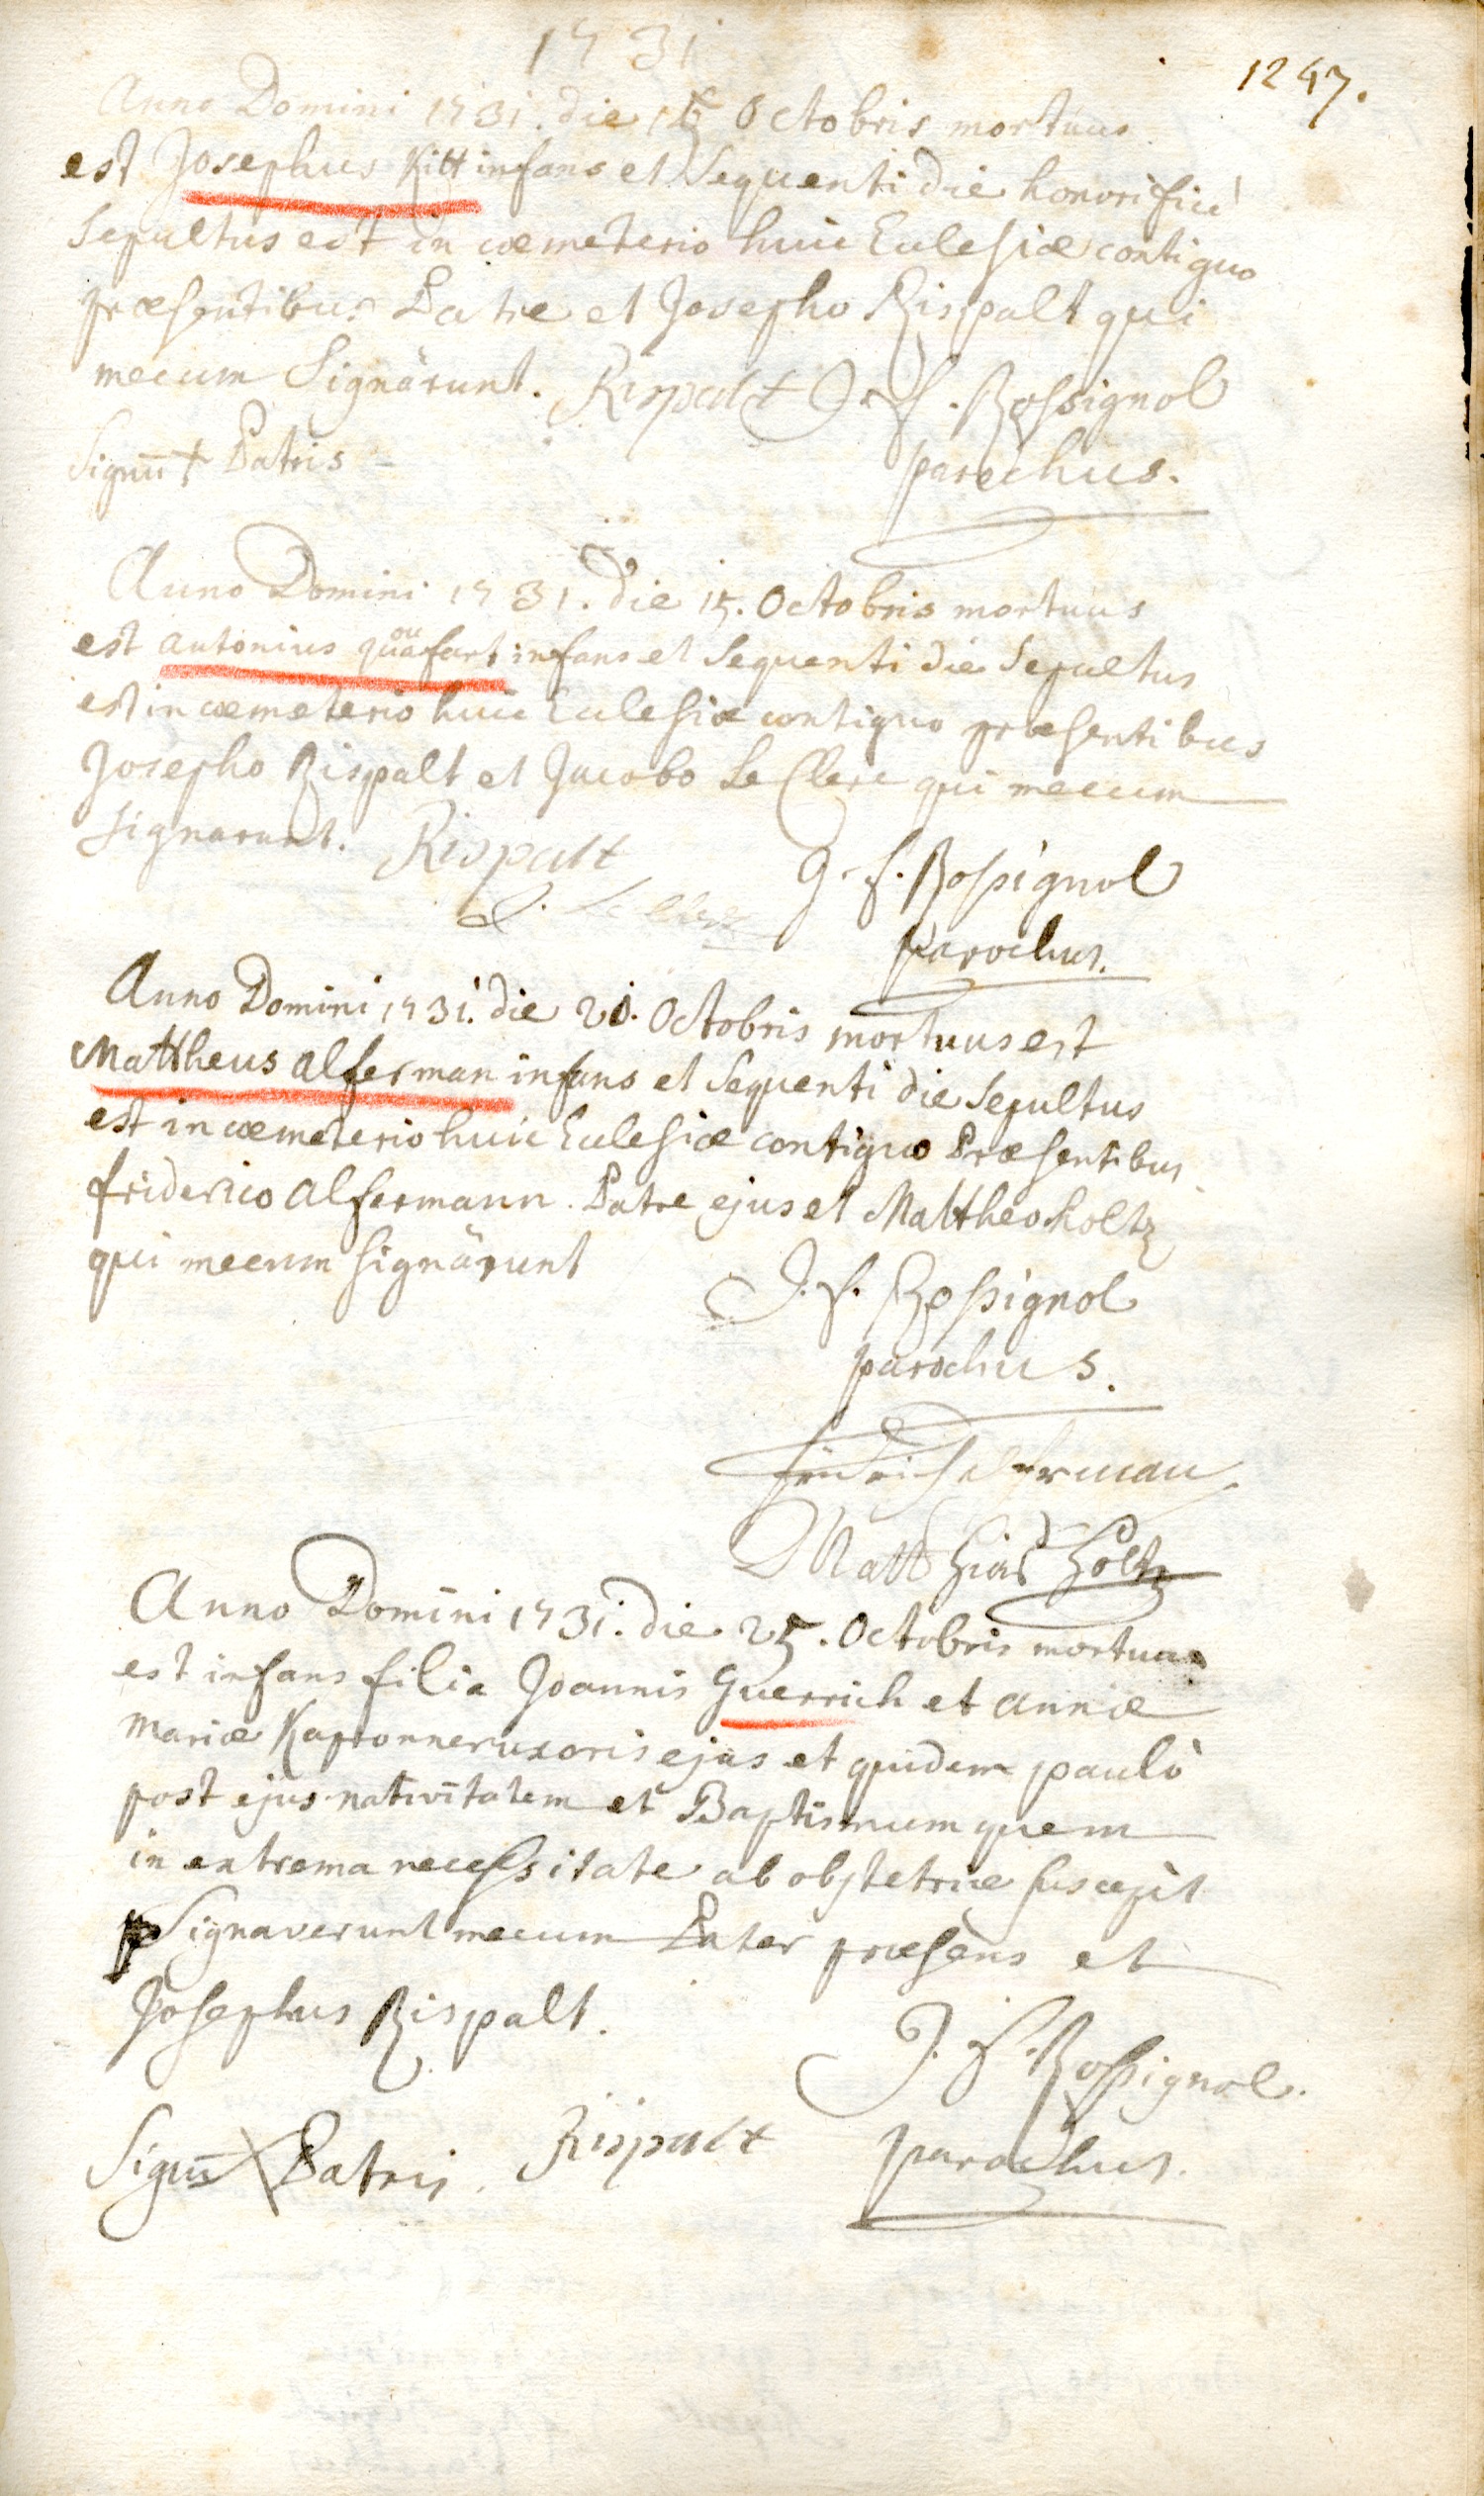 1731
1247.
Anno Domini 1731. die 15 Octobris mortuus
est Josephus Kitt infans et Sequenti die honorificè
Sepultus est in cœmeterio huic Eclesiæ contiguo
præsentibus Patre et Josepho Rispalt qui
mecum Signârunt. Rispalt J. f. Rossignol
Signū + Patris parochus.
Anno Domini 1731. die 15. Octobris mortuus
est antonius quafart infans et Sequenti die Sepultus
ou
est in cœmeterio huic Eclesiæ contiguo præsentibus
Josepho Rispalt et Jacobo Le Clerc qui mecum
Signarunt. Rispalt J. f. Rossignol
parochus.
Anno Domini 1731. die 20. Octobris mortuus est
Mattheus alferman infans et Sequenti die Sepultus
est in cœmeterio huic Eclesiæ contiguo Præsentibus
friderico alfermann. Patre ejus et Mattheo holtz
qui mecum signârunt
J. f. Rossignol
parochus.
fridrich alferman
Matthias Holtz
Anno Domini 1731. die 25. Octobris mortua
est infans filia Joannis Guerrich et annæ
mariæ Kapronner uxoris ejus et quidem paulò
post ejus nativitatem et Baptismum quem
in extrema necessitate ab obstetrice suscepit
Signaverunt mecum Pater præsens et
Josephus Rispalt.
J. f. Rossignol.
Signū X Patris. Rispalt parochus.